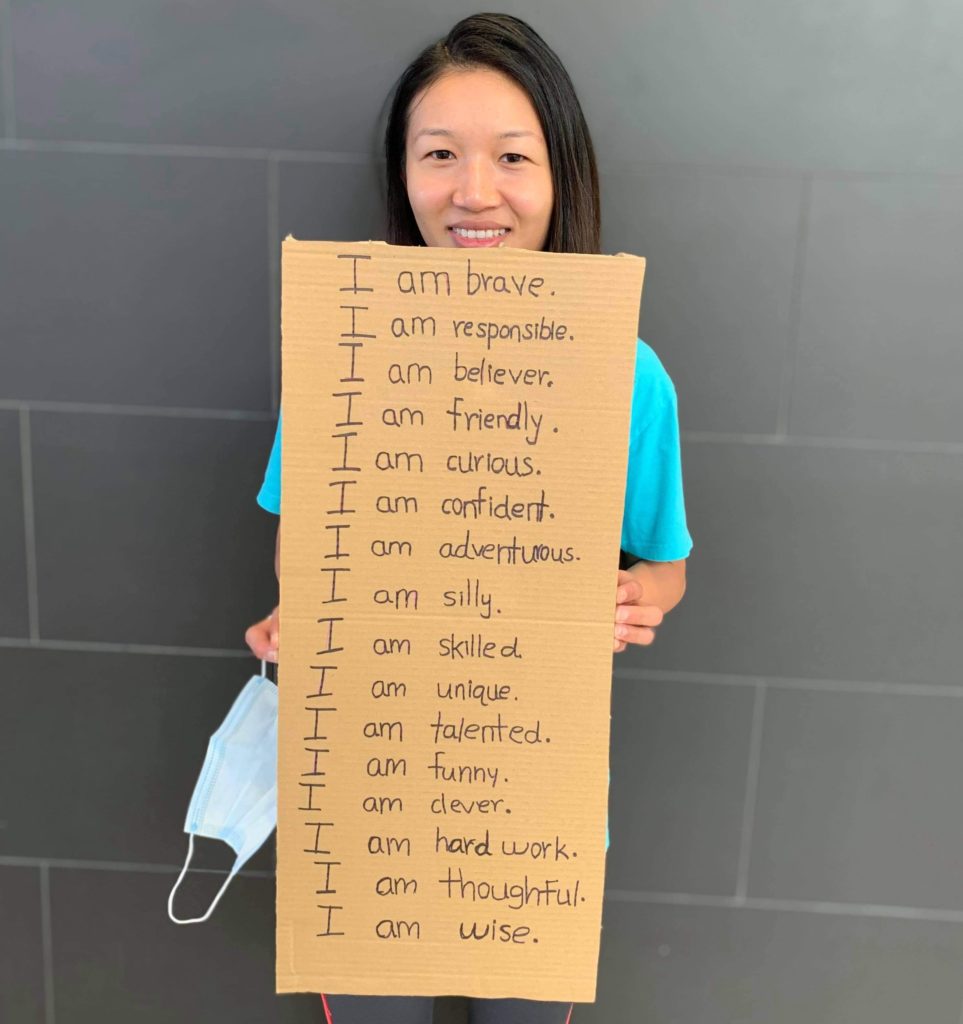 I am brave.
I am responsible.
I am believer.
I am friendly.
I am curious.
I am confident.
I am adventurous.
I am silly.
I am skilled.
I am unique.
I am talented.
I am funny.
I am clever.
I am hard work.
I am thoughtful.
I am wise.